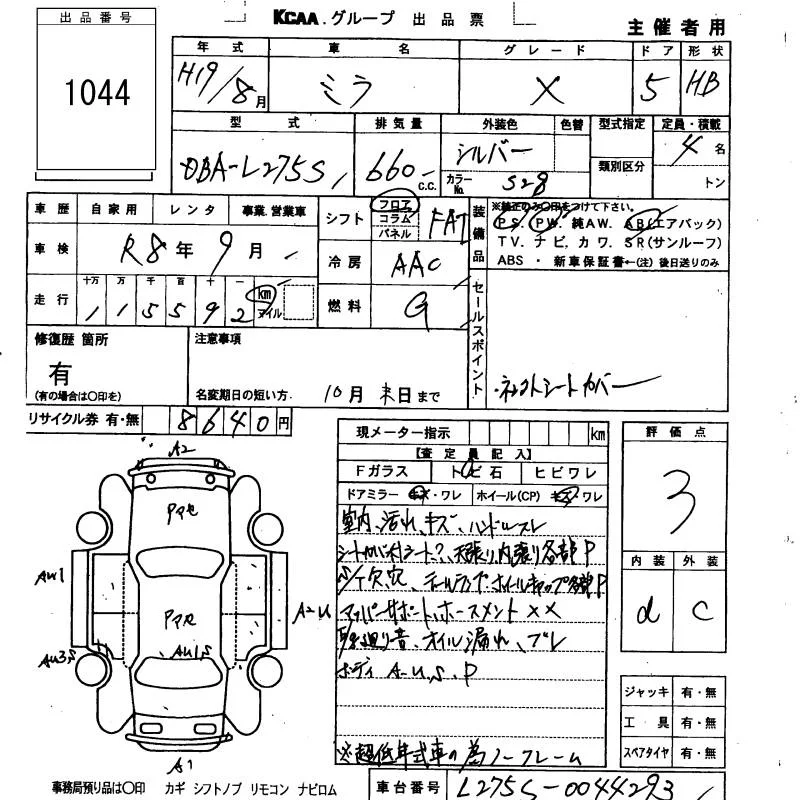 出品番号
1044
KCAA.グループ 出品票
主催者用
年式 車名 グレード ドア 形状
H19/8月 ミラ X 5 HB
型式 排気量 外装色 色替 型式指定 定員・積載
DBA-L275S 660 c.c. シルバー 類別区分 4名
カラーNo. S28 トン
車歴 自家用 レンタ 事業.営業車
シフト フロア コラム パネル FAT
装備品 ※純正のみ〇印をつけて下さい。
PS. PW. 純AW. AB(エアバック)
TV. ナビ. カワ. SR(サンルーフ)
ABS ・ 新車保証書←(注) 後日送りのみ
車検 R8年9月
冷房 AAC
走行 十万 万 千 百 十 一 km マイル
115592
燃料 G
セールスポイント
シートカバー
修復歴 箇所
有
(有の場合は〇印を)
注意事項
名変期日の短い方. 10月末日まで
リサイクル券 有・無 8640円
現メーター指示 km
【査定員記入】
Fガラス トビ石 ヒビワレ
ドアミラー キズ・ワレ ホイール(CP) キズ ワレ
室内、汚れ、キズ、ハンドルスレ
天張り内張り各部P
欠、穴、テールランプ、ホイールキャップ各部P
アッパーサポート、ホースメント××
廻り音、オイル漏れ、ブレ
ボディ A-U,S,P
※超低年式車の為ノークレーム
評価点
3
内装 外装
d C
ジャッキ 有・無
工具 有・無
スペアタイヤ 有・無
A2
Pアセ
AW1
A2U
Pアセ
AU1S
AU3S
A1
事務局預り品は〇印 カギ シフトノブ リモコン ナビロム
車台番号 L275S-0044293